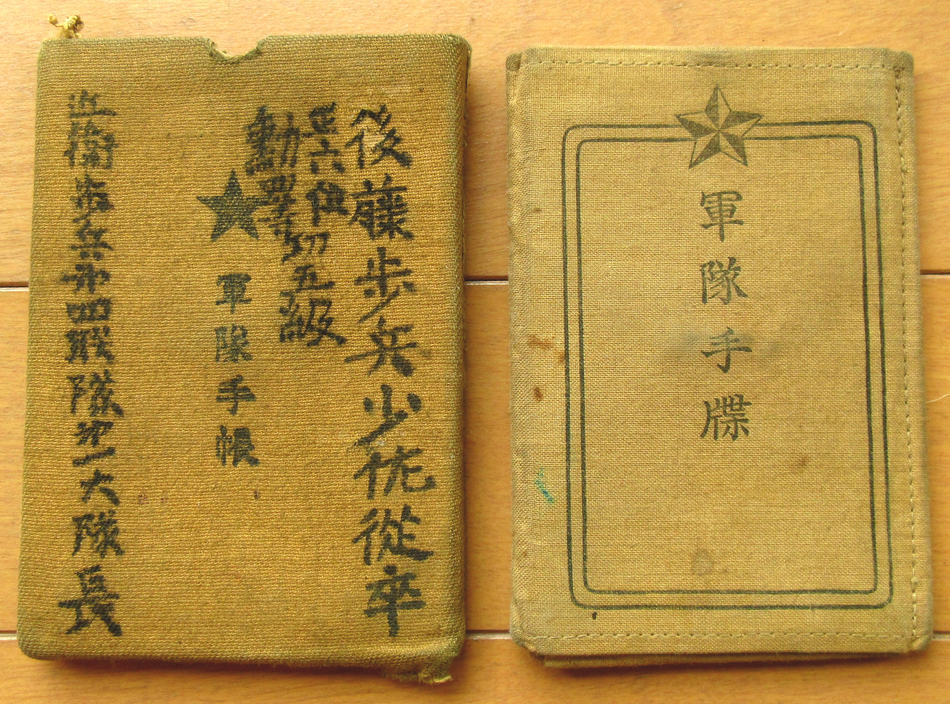 後藤歩兵少佐從卒
正六位
勳四等功五級
軍隊手帳
近衛歩兵第四聯隊第一大隊長
軍隊手牒